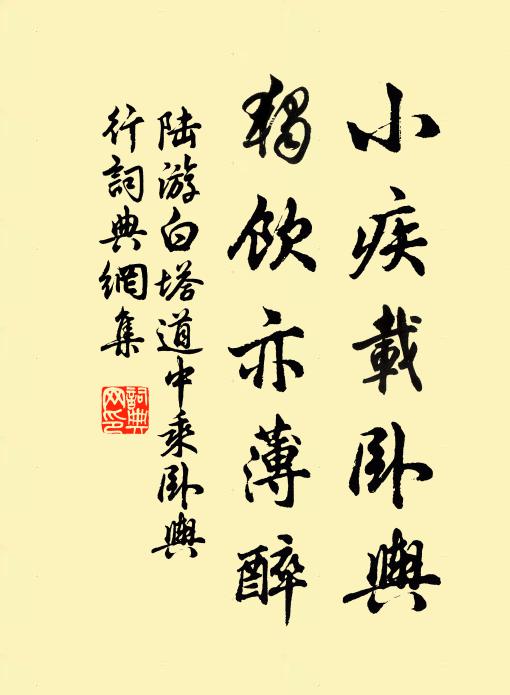 小疾載卧輿
獨飲亦薄醉
陸游白塔道中乘卧輿
行詞典網集
詞典网印